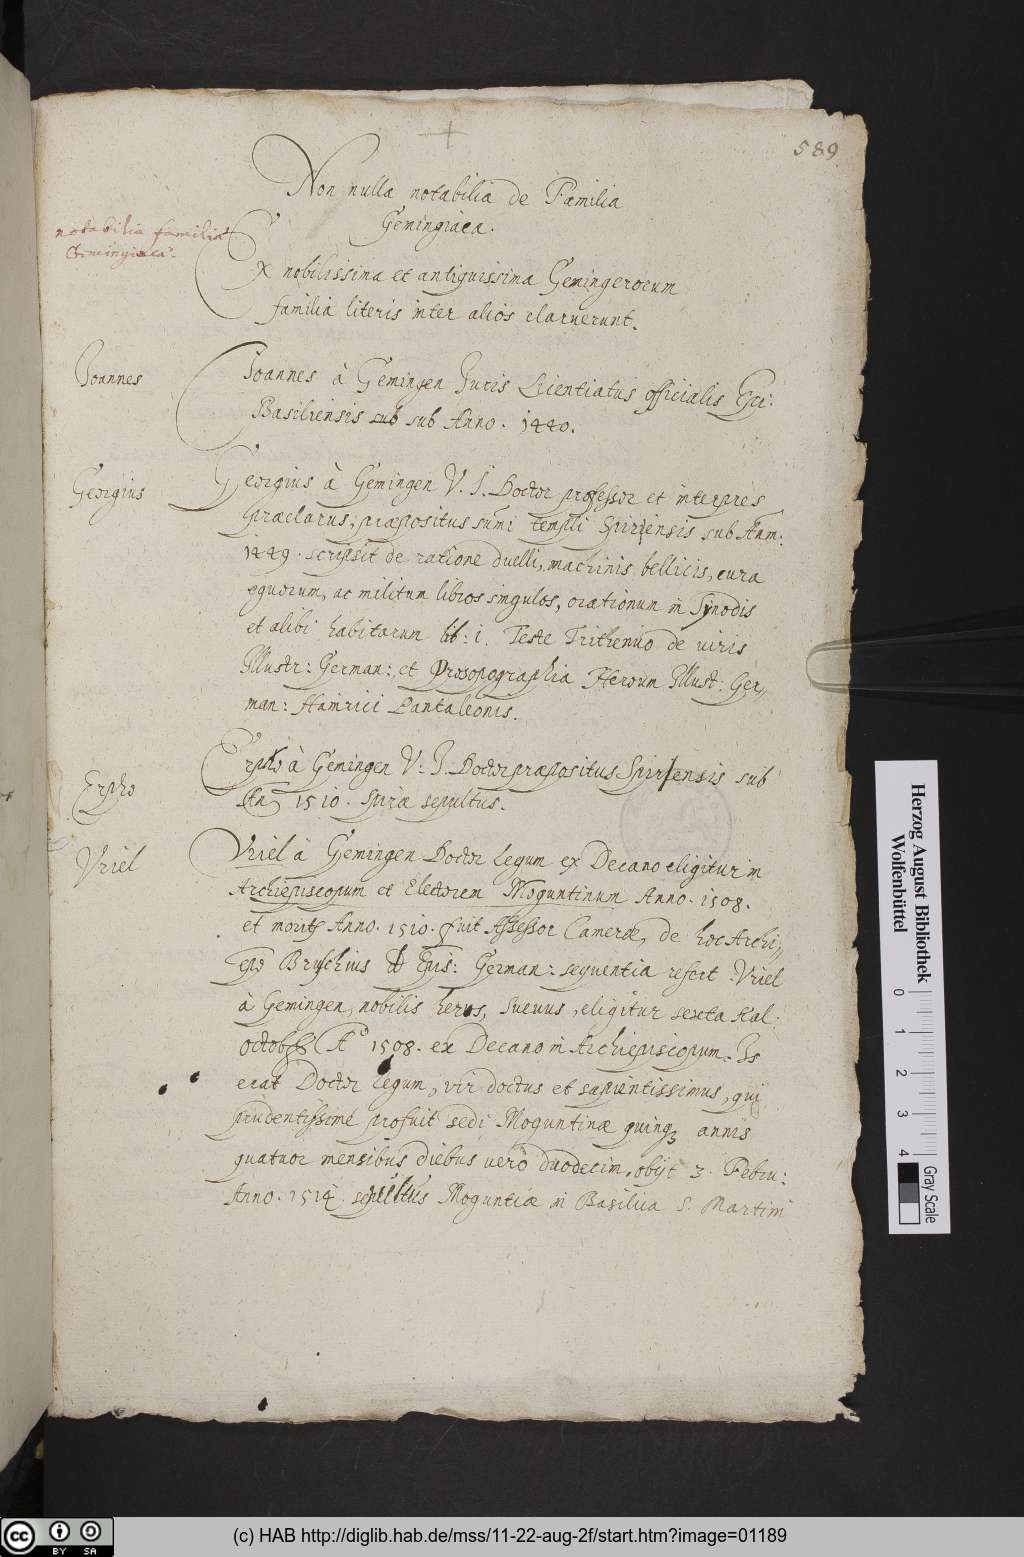 589
Non nulla notabilia de Familia
Gemingiaca.
notabilia familiæ
Gemingiacæ.
Ex nobilissima et antiquissima Gemingerorum
familia literis inter alios claruerunt.
Joannes
Joannes à Gemingen Juris Licentiatus officialis
Basiliensis sub sub Anno. 1440.
Georgius
Georgius à Gemingen V. J. Doctor professor et interpres
præclarus, præpositus sumi templi Spirensis sub Ann:
1449. scripsit de ratione duelli, machinis bellicis, cura
equorum, ac militum libros singulos, orationum in Synodis
et alibi habitarum lib: i. Teste Trithemio de viris
Illustr: German:, et Prosopographia Heroum Illust: Ger,,
man: Hainrici Pantaleonis.
Erpho
Erpho à Gemingen V. J. Doctor præpositus Spirensis sub
An 1510. Spiræ sepultus.
Vriel
Vriel à Gemingen Doctor Legum ex Decano eligitur in
Archiepiscopum et Electorem Moguntinum Anno. 1508.
et Anno. 1510. fuit Assessor Cameræ, de hoc Archi,,
Bruschius Epis: German: sequentia refert Vriel
à Gemingen, nobilis herus, Suevus, eligitur sexta Kal.
octob Aº 1508. ex Decano in Archiepiscopum. Is
erat Doctor Legum, vir doctus et sapientissimus, qui
prudentissimè profuit sedi Moguntinæ quinq annis
quatuor mensibus diebus verò duodecim, obijt 3. Febru:
Anno. 1514. sepultus Moguntiæ in Basilica S. Martini
Herzog August Bibliothek
Wolfenbüttel
0 1 2 3 4
Gray Scale
cc BY SA
(c) HAB http://diglib.hab.de/mss/11-22-aug-2f/start.htm?image=01189